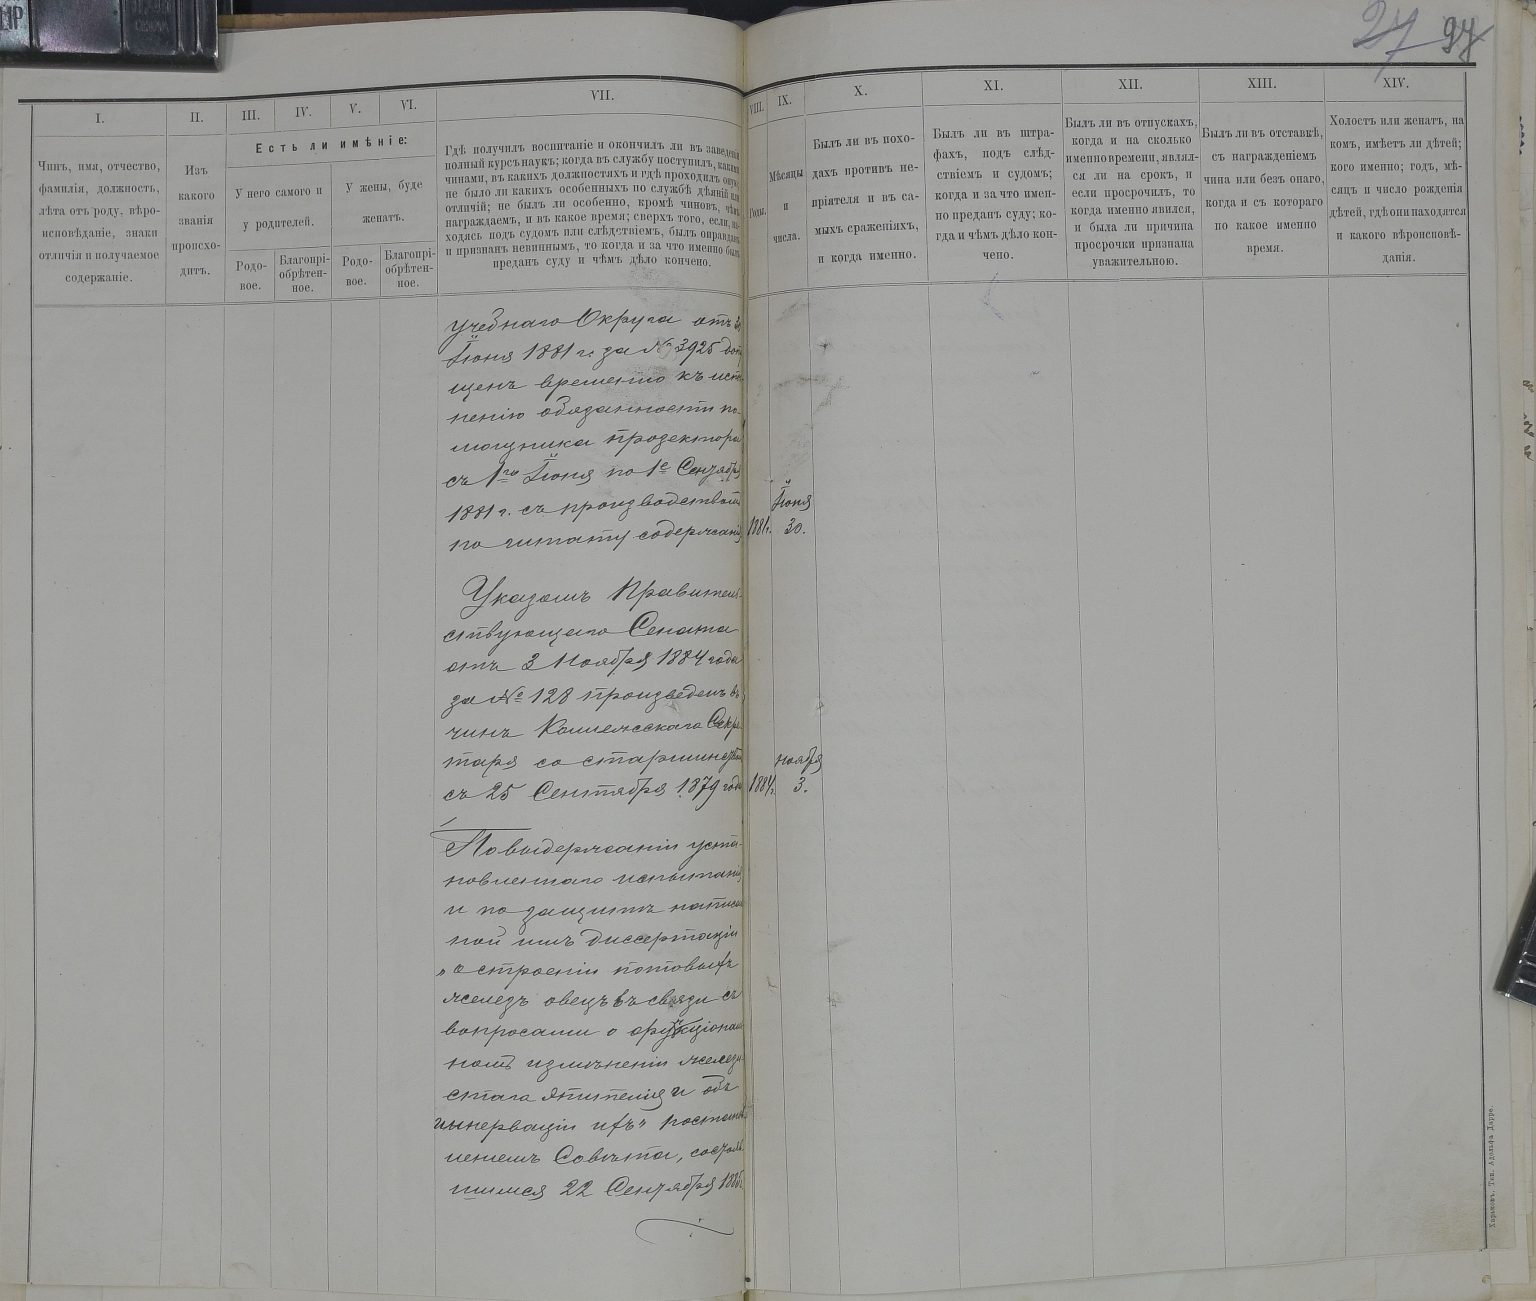 27 97
I.
II.
III.
IV.
V.
VI.
VII.
VIII.
IX.
X.
XI.
XII.
XIII.
XIV.
Чинъ, имя, отчество,
фамилія, должность,
лѣта отъ роду, вѣро-
исповѣданіе, знаки
отличія и получаемое
содержаніе.
Изъ
какого
званія
происхо-
дитъ.
Есть ли имѣніе:
У него самого и
у родителей.
У жены, буде
женатъ.
Родо-
вое.
Благопрі-
обрѣтен-
ное.
Родо-
вое.
Благопрі-
обрѣтен-
ное.
Гдѣ получилъ воспитаніе и окончилъ ли въ заведеніи
полный курсъ наукъ; когда въ службу поступилъ, какими
чинами, въ какихъ должностяхъ и гдѣ проходилъ оную;
не было ли какихъ особенныхъ по службѣ дѣяній или
отличій; не былъ ли особенно, кромѣ чиновъ, чѣмъ
награждаемъ, и въ какое время; сверхъ того, если, на-
ходясь подъ судомъ или слѣдствіемъ, былъ оправданъ
и признанъ невиннымъ, то когда и за что именно былъ
преданъ суду и чѣмъ дѣло кончено.
Годы.
Мѣсяцы
и
числа.
Былъ ли въ похо-
дахъ противъ не-
пріятеля и въ са-
мыхъ сраженіяхъ,
и когда именно.
Былъ ли въ штра-
фахъ, подъ слѣд-
ствіемъ и судомъ;
когда и за что имен-
но преданъ суду; ко-
гда и чѣмъ дѣло кон-
чено.
Былъ ли въ отпускахъ,
когда и на сколько
именно времени, являл-
ся ли на срокъ, и
если просрочилъ, то
когда именно явился,
и была ли причина
просрочки признана
уважительною.
Былъ ли въ отставкѣ,
съ награжденіемъ
чина или безъ онаго,
когда и съ котораго
по какое именно
время.
Холостъ или женатъ, на
комъ, имѣетъ ли дѣтей;
кого именно; годъ, мѣ-
сяцъ и число рожденія
дѣтей, гдѣ они находятся
и какого вѣроисповѣ-
данія.
учебнаго Округа отъ 30
Іюня 1881 г. за № 3925 допу
щенъ временно къ испол
ненію обязанности по-
мощника прозектора
съ 1го Іюня по 1е Сентября
1881 г. съ производствомъ
по штату содержанія
1881 г.
Іюня
30.
Указомъ Правитель-
ствующаго Сената
отъ 3 Ноября 1884 года
за № 128 произведенъ въ
чинъ Коллежскаго Секре
таря со старшинствомъ
съ 25 Сентября 1879 года
1884 г.
ноября
3.
По выдержаніи уста-
новленнаго испытанія
и по защитѣ написан
ной имъ диссертаціи
„о строеніи потовыхъ
железъ овецъ въ связи съ
вопросами о функціональ
номъ измѣненіи желези-
стаго эпителія и объ
иннерваціи ихъ" постанов
леніемъ Совѣта, состояв
шимся 22 Сентября
Харьковъ. Тип. Адольфа Дарре.